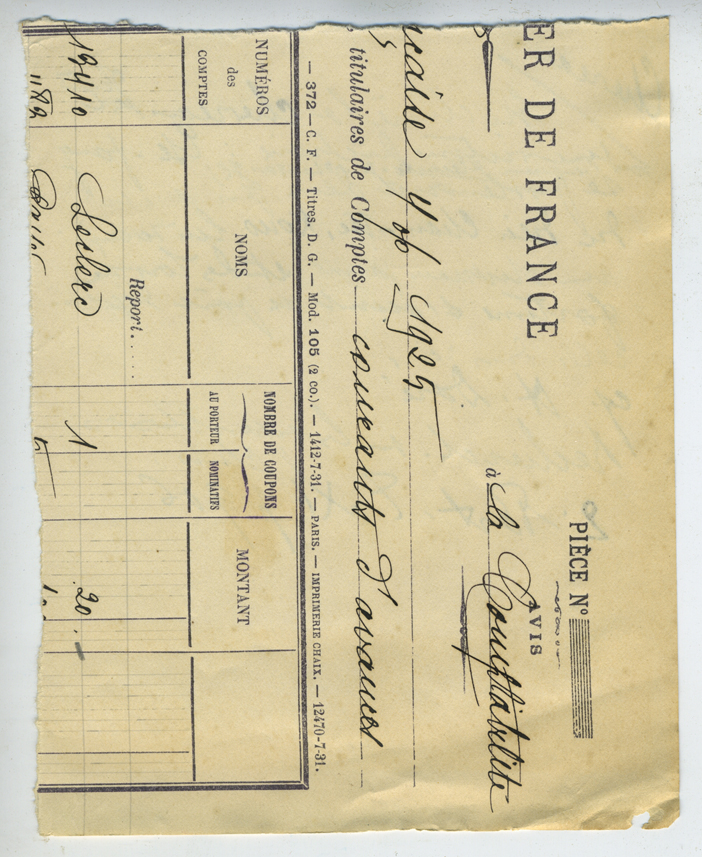 PIÈCE N°
ER DE FRANCE
AVIS
à la Comptabilité
4 1925
titulaires de Comptes courants d'avances
— 372 — C. F. — Titres. D. G. — Mod. 105 (2 co.). — 1412-7-31. — PARIS. — IMPRIMERIE CHAIX. — 12470-7-31.
NUMÉROS des COMPTES
NOMS
NOMBRE DE COUPONS
AU PORTEUR
NOMINATIFS
MONTANT
Report.....
19410 Leclerc 1 20